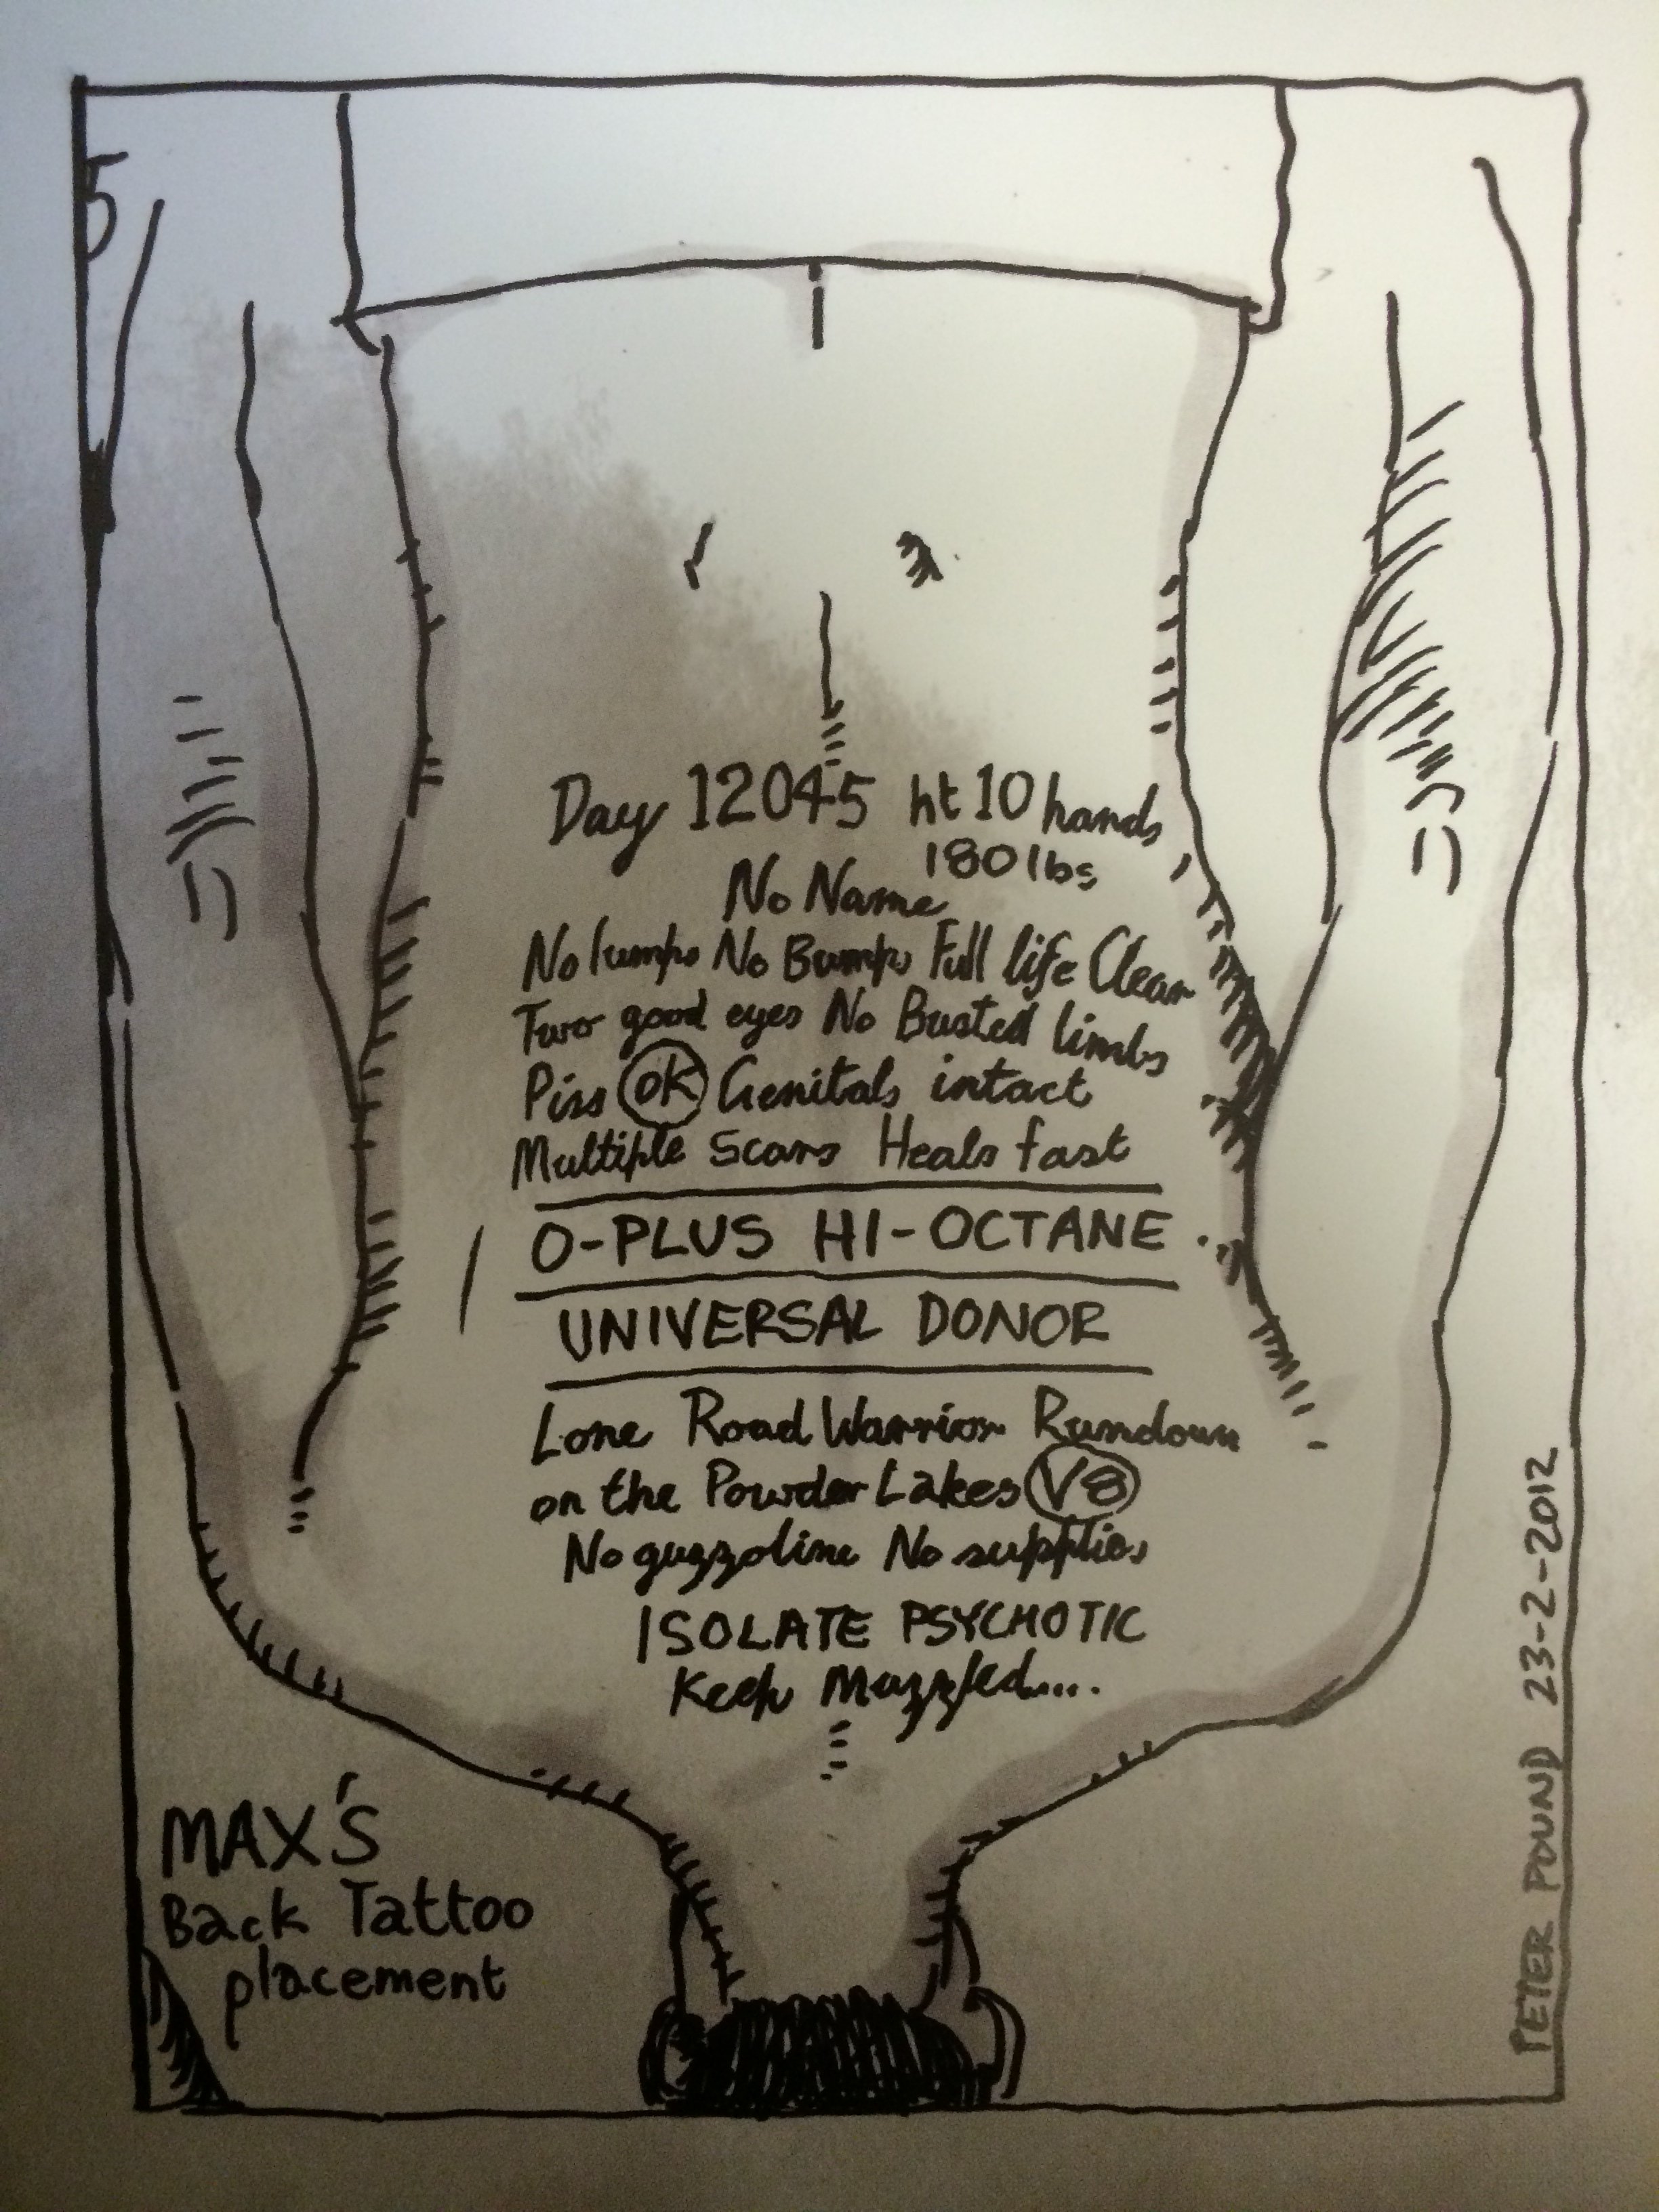 5
Day 12045 ht 10 hands
180 lbs
No Name
No lumps No Bumps Full life Clear
Two good eyes No Busted limbs
Piss OK Genitals intact
Multiple Scars Heals fast
O-PLUS HI-OCTANE
UNIVERSAL DONOR
Lone Road Warrior Rundown
on the Powder Lakes V8
No guzzoline No supplies
ISOLATE PSYCHOTIC
Keep Muzzled.....
MAX'S
Back Tattoo
placement
PETER POUND 23-2-2012